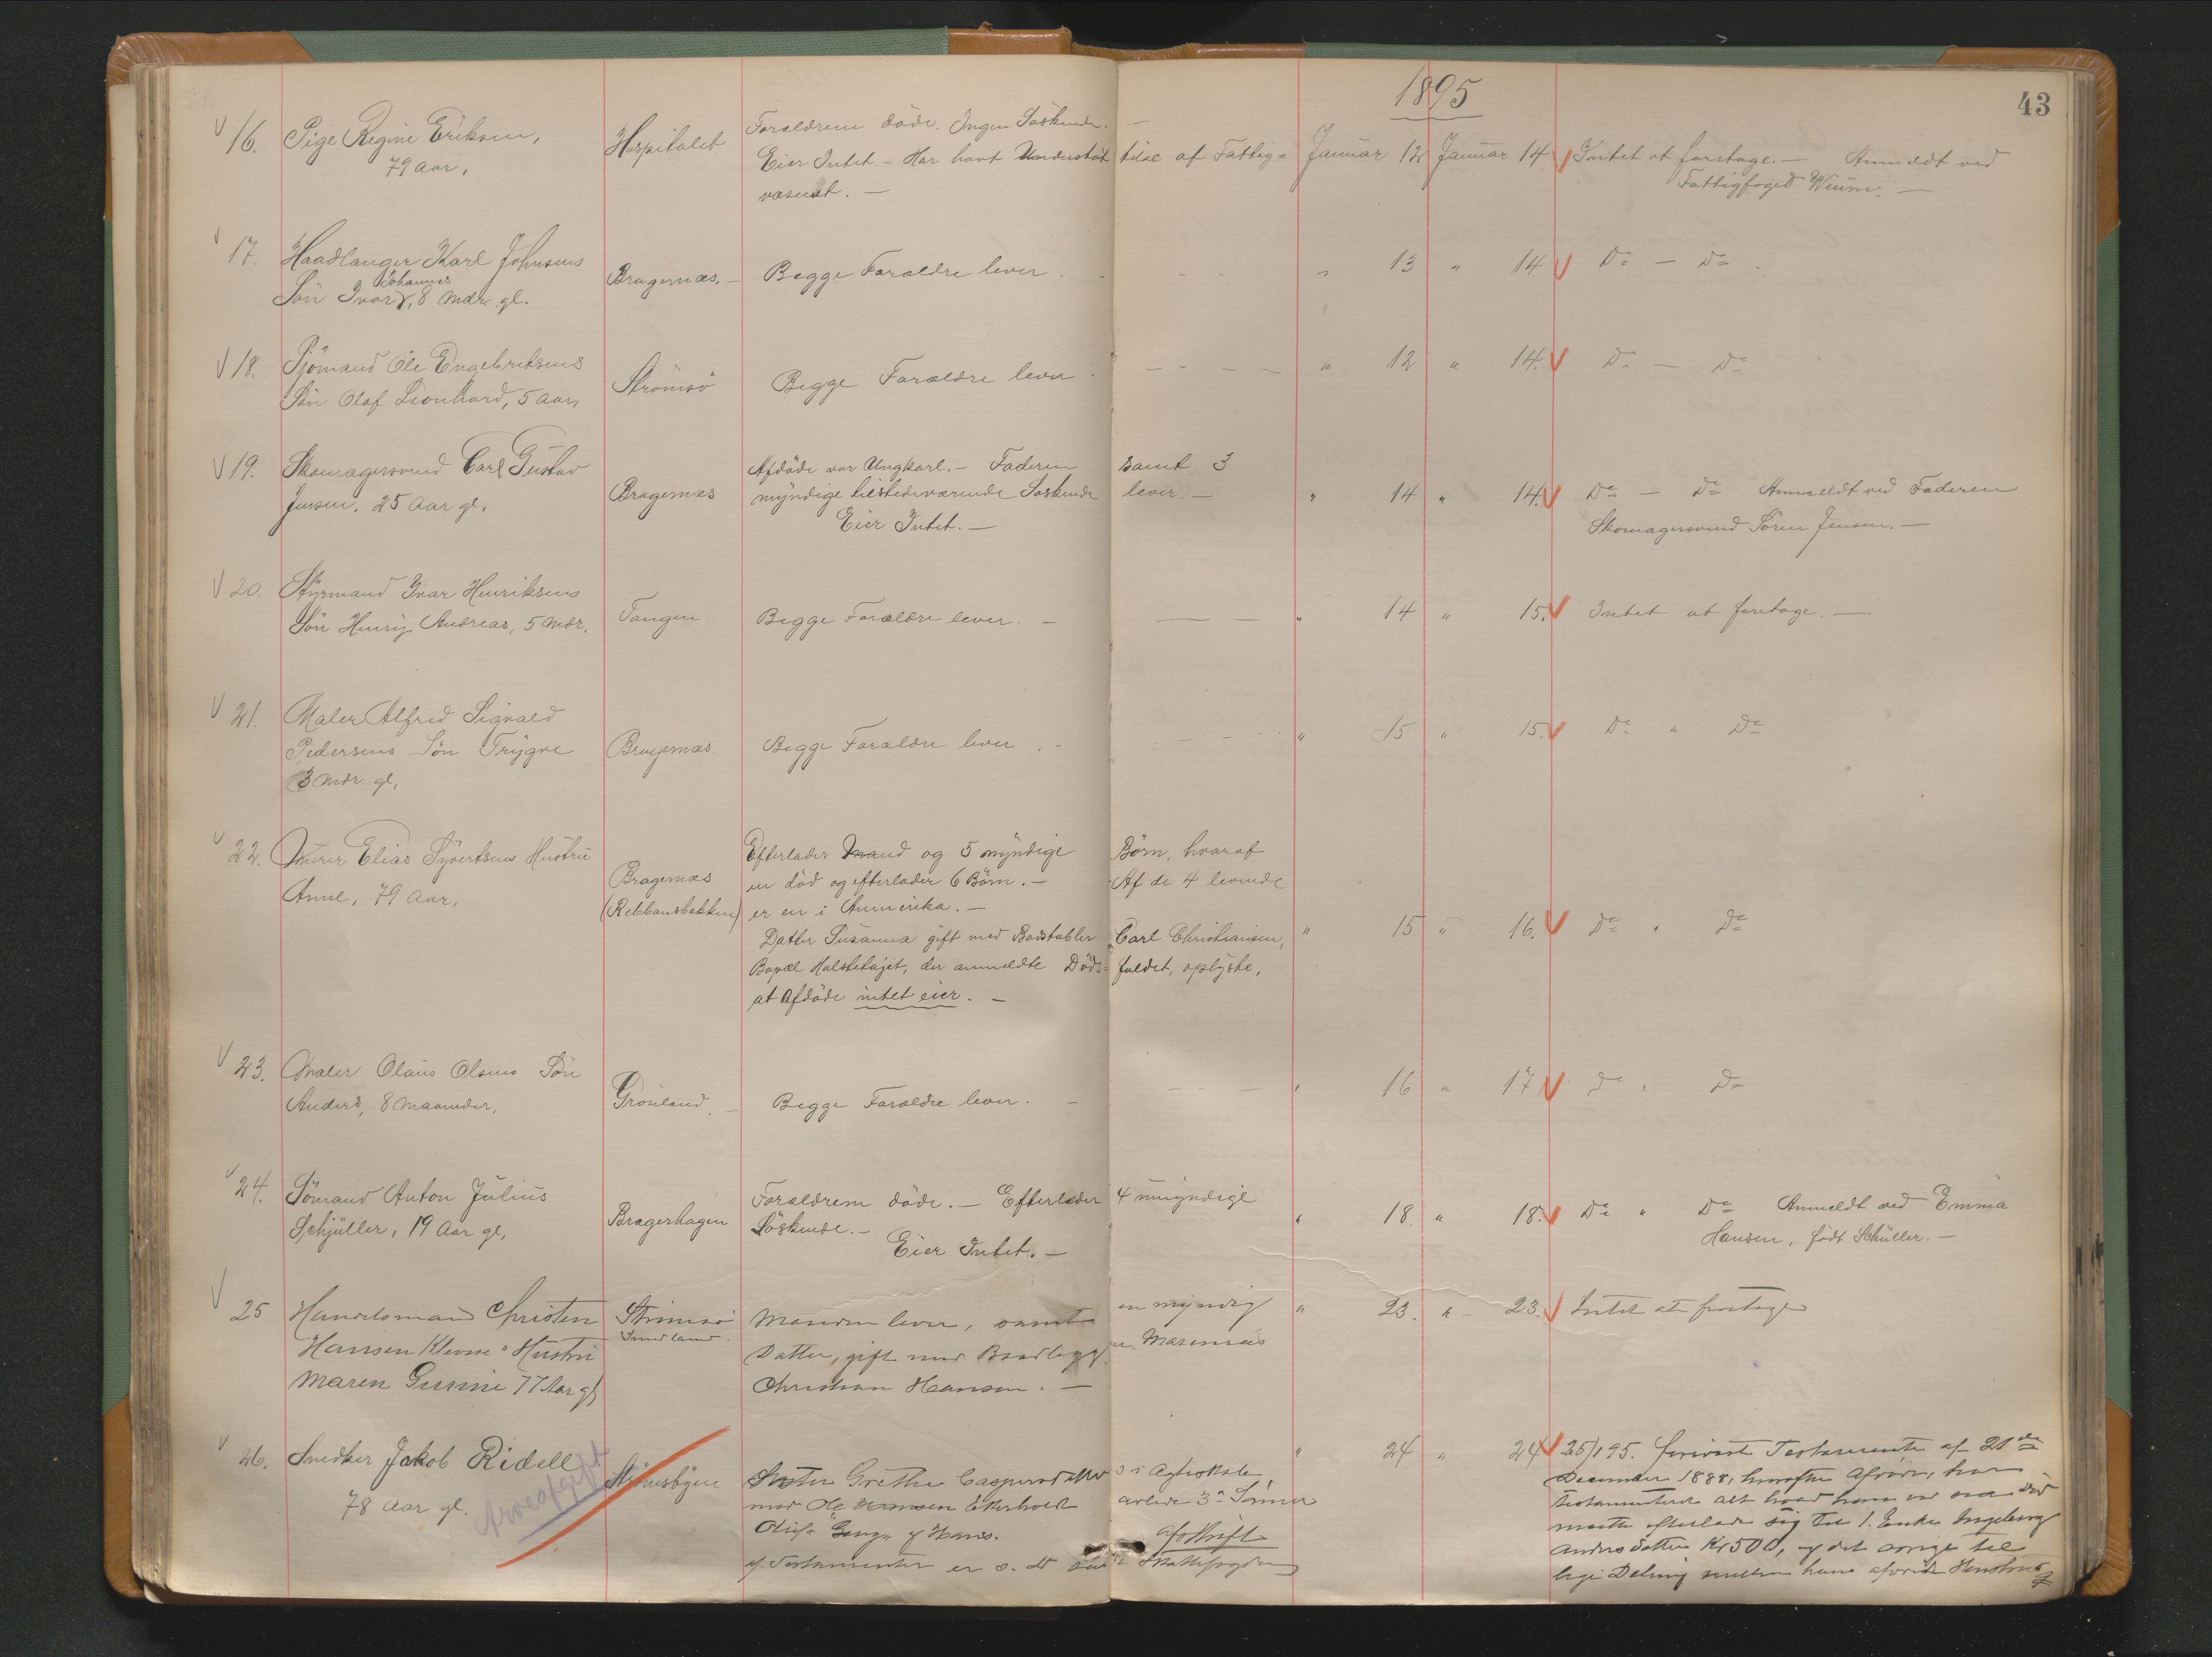 1895
43
16. Pige Regine Eriksen, Hospitalet Forældrene døde. Ingen Søskende.
79 Aar. Eier Intet. - Har havt Understøttelse af Fattig= Januar 12 Januar 14. Intet at foretage. - Anmeldt ved
væsenet. - Fattigfoged Wium. -
17. Haadlanger Karl Johnsens
Johannes
Søn Ivar, 8 Mdr. gl. Bragernæs. - Begge Forældre lever. " 13 " 14. Do - Do
18. Sjømand Ole Engebretsens
Søn Olaf Leonhard, 5 Aar, Strømsø Begge Forældre lever. " 12 " 14. Do - Do
19. Skomagersvend Carl Gustav Afdøde var Ungkarl. - Faderen samt 3
Jensen. 25 Aar gl. Bragernæs myndige tilstedeværende Søskende lever. - " 14 " 14. Do - Do Anmeldt ved Faderen
Eier Intet. - Skomagersvend Søren Jensen. -
20. Styrmand Ivar Henriksens
Søn Henrij Andreas, 5 Mdr. Tangen Begge Forældre lever. - " 14 " 15. Intet at foretage. -
21. Maler Alfred Sigvald
Pedersens Søn Trygve Bragernæs. Begge Forældre lever. - " 15 " 15. Do " Do
3 Mdr. gl.
22. Murer Elias Syvertsens Hustru Efterlader Mand og 5 myndige Børn, hvoraf
Anne, 79 Aar, Bragernæs en død og efterlader 6 Børn. - Af de 4 levende
(Rebbansbakken) er en i Amerika. -
Datter Susanna gift med Carl Christiansen, " 15 " 16. Do " Do
Bopæl der anmeldte Døds= faldet, oplyste,
at Afdøde intet eier. -
23. Maler Olaus Olsens Søn
Anders, 8 Maaneder, Grønland. Begge Forældre lever. - " 16 " 17 Do " Do
24. Sømand Anton Julius Forældrene døde. - Efterlader 4 umyndige
Schjüller, 19 Aar gl, Bragerhagen Søskende. - " 18. " 18. Do " Do Anmeldt ved Emma
Eier Intet. - Hansen, født Schüller. -
25 Handelsmand Christen Strømsø Manden lever, samt en myndig " 23. " 23. Intet at foretage
Hansen Klevne's Hustru Sundland. Datter, gift med Marenius
Maren Gurine 77 Aar gl Christian Hansen. -
26. Snedker Jakob Ridell " 24 " 24 25/1 95. foreviist Testamente af 21de
78 Aar gl. Arveafgift Strømsbyene Søster Grethe Caspersdatter i Ægteskab December 1888, hvorefter Afdøde, har
med Ole Hansen Ekerholt avlede 3 Sønner testamenteret alt hvad han ved sin Død
Oluf, og Hans. afskrift maatte efterlade sig til 1. Enke Ingeborg
af Testamentet er s. D. Skattefogden Andersdatter Kr 500, og det øvrige til
lige Deling mellem hans afdøde Hustrus